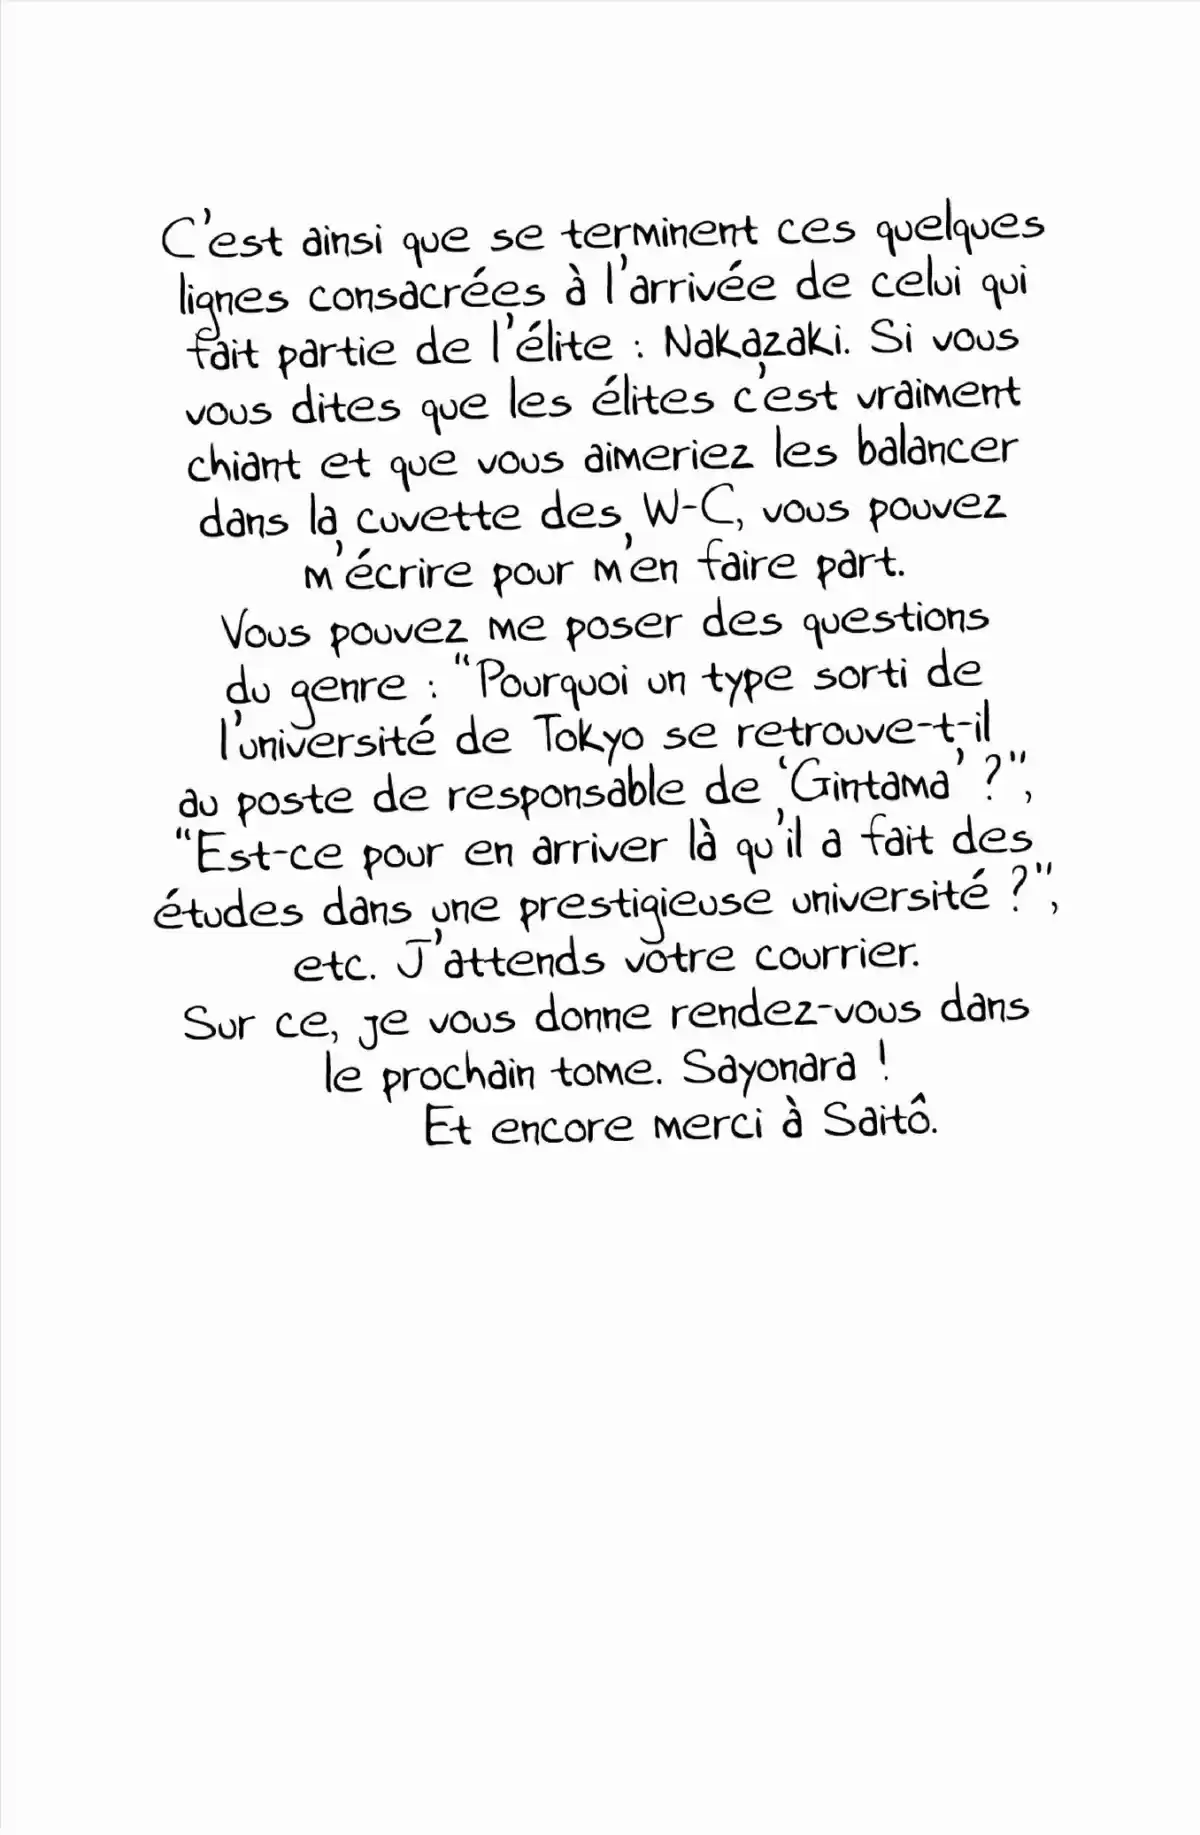 C'est ainsi que se terminent ces quelques
lignes consacrées à l'arrivée de celui qui
fait partie de l'élite : Nakazaki. Si vous
vous dites que les élites c'est vraiment
chiant et que vous aimeriez les balancer
dans la cuvette des W-C, vous pouvez
m'écrire pour m'en faire part.
Vous pouvez me poser des questions
du genre : "Pourquoi un type sorti de
l'université de Tokyo se retrouve-t-il
au poste de responsable de 'Gintama' ?",
"Est-ce pour en arriver là qu'il a fait des
études dans une prestigieuse université ?",
etc. J'attends votre courrier.
Sur ce, je vous donne rendez-vous dans
le prochain tome. Sayonara !
Et encore merci à Saitô.